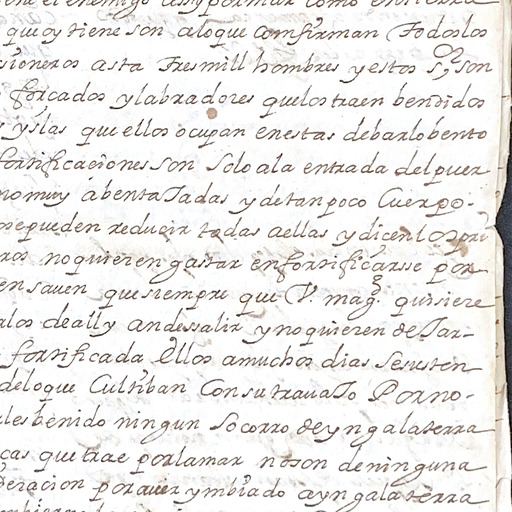 el enemigo assy por mar como en tierra
que oy tiene son aloque confirman Todoslos
sioneros asta Tresmill hombres y estos s,, son
forcados ylabradores quelos traen bendidos
yslas que ellos ocupan enestas debarlobento
fortificaciones son solo ala entrada del puer
no muy abentaJadas y detanpoco Cuerpo.
sepueden reducir todas aellas y dicen los pri
ros noquieren gastar enfortificarsse por
en saven que siempre que V. mag. quisiere
alos deally andessalir ynoquieren deJar
fortificada Ellos amuchos dias Sesusten
deloque Cultiban Consu trauaJo Porno
ales benido ningun Socorro deyngalaterra
cas que trae porlamar noson deninguna
deracion por auer ymbiado ayngalaterra